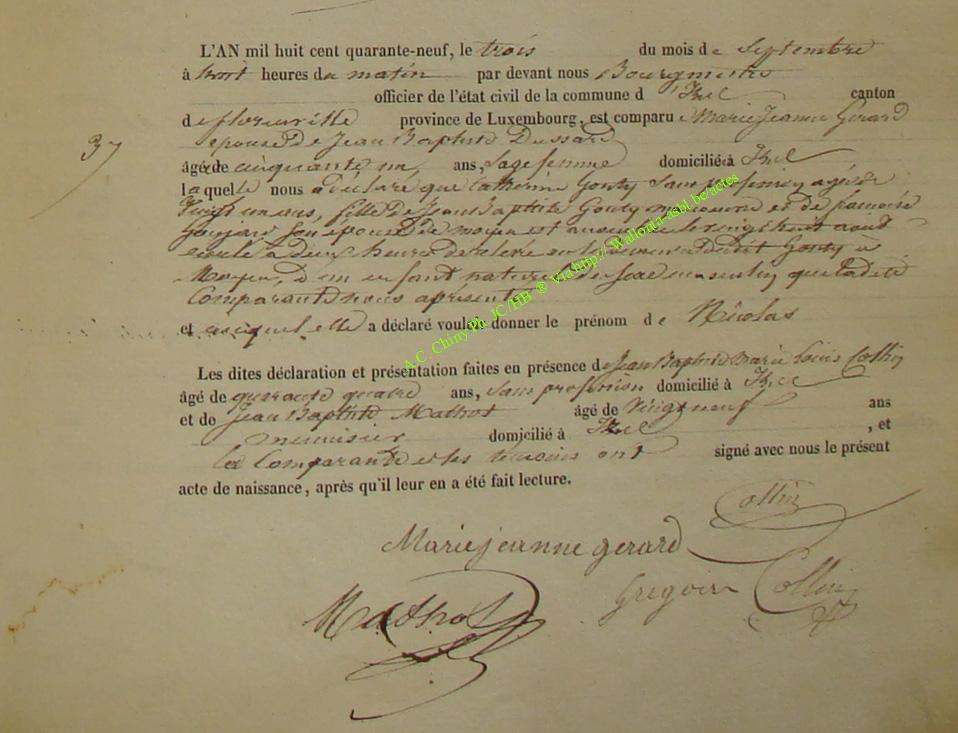 L'AN mil huit cent quarante-neuf, le trois du mois de Septembre
à huit heures du matin par devant nous Bourgmestre
officier de l'état civil de la commune d'Izel canton
de florenville province de Luxembourg, est comparue Marie Jeanne Gerard
epouse de Jean Baptiste Dussard
37
âgée de cinquante un ans, Sage femme domiciliée à Izel
laquelle nous a declaré que Catherine Gouty Sans profession agée de
Vingt un ans, fille de Jean Baptiste Gouty manoeuvre et de
son epouse de moyen est le vingt huit aout
à deux heures de dudit Gouty à
Moyen, d'un enfant naturel de sexe masculin que ladite
Comparante nous a présenté
et auquel elle a déclaré vouloir donner le prénom de Nicolas
Les dites déclaration et présentation faites en présence de Jean Baptiste Marie Louis Collin
âgé de quarante quatre ans, sans profession domicilié à Izel
et de Jean Baptiste Mathot âgé de Vingt neuf ans
menuisier domicilié à Izel , et
la Comparante et les temoins ont signé avec nous le présent
acte de naissance, après qu'il leur en a été fait lecture.
Collin
Marie jeanne gerard
Gregoire Collin
Mathot
A.C. Chiny Ph. JC/HB ® Via http://Wallonia-asbl.be/actes